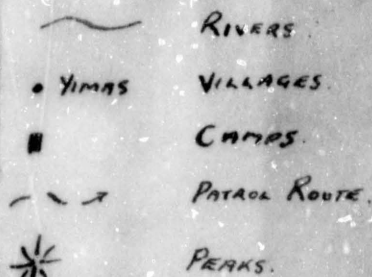 RIVERS.
• YIMAS VILLAGES.
CAMPS.
PATROL ROUTE.
PEAKS.